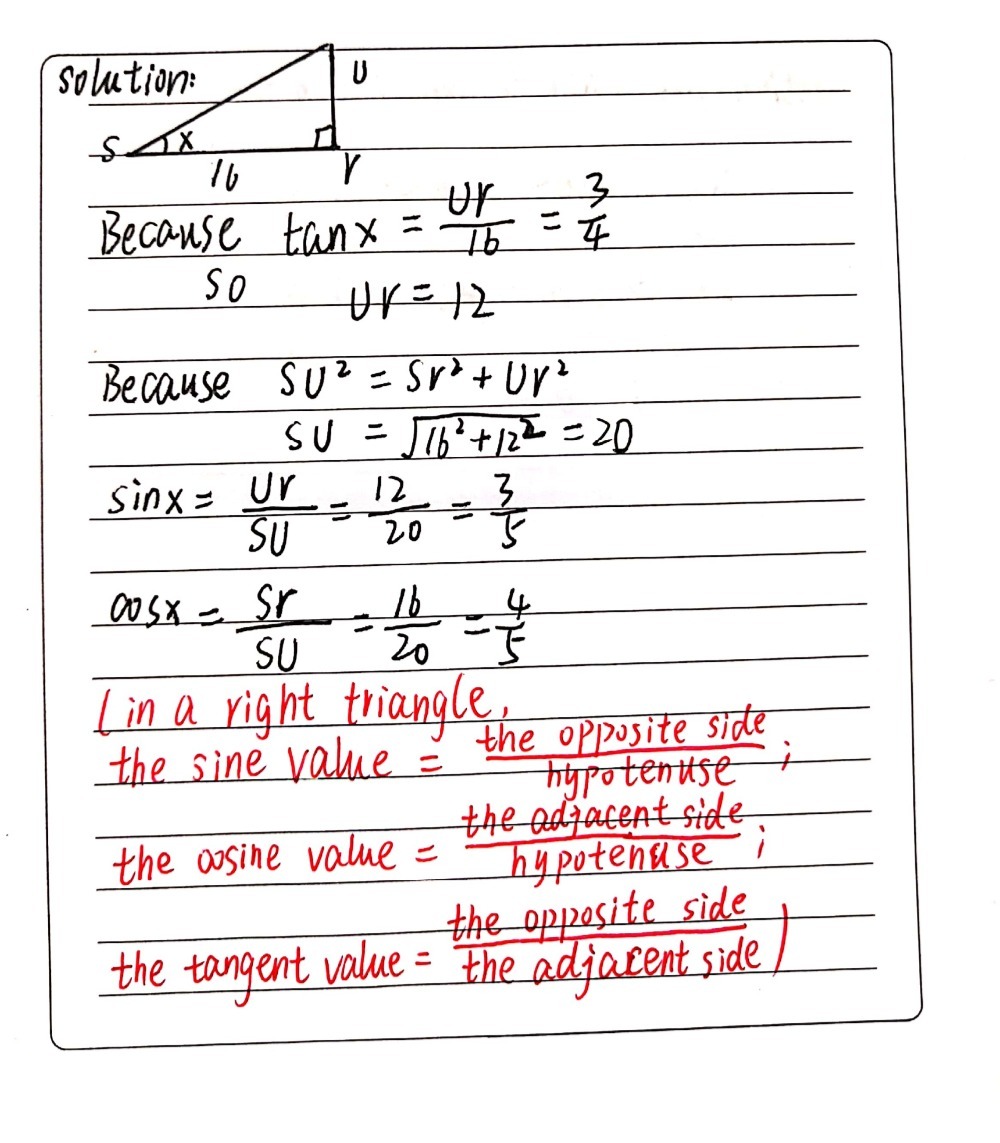 solution:
U
S x
16 r
Because tanx = Ur/16 = 3/4
so Ur = 12
Because SU² = Sr² + Ur²
SU = √16²+12² = 20
sinx = Ur/SU = 12/20 = 3/5
cosx = Sr/SU = 16/20 = 4/5
(in a right triangle,
the sine value = the opposite side/hypotenuse ;
the cosine value = the adjacent side/hypotenuse ;
the tangent value = the opposite side/the adjacent side)